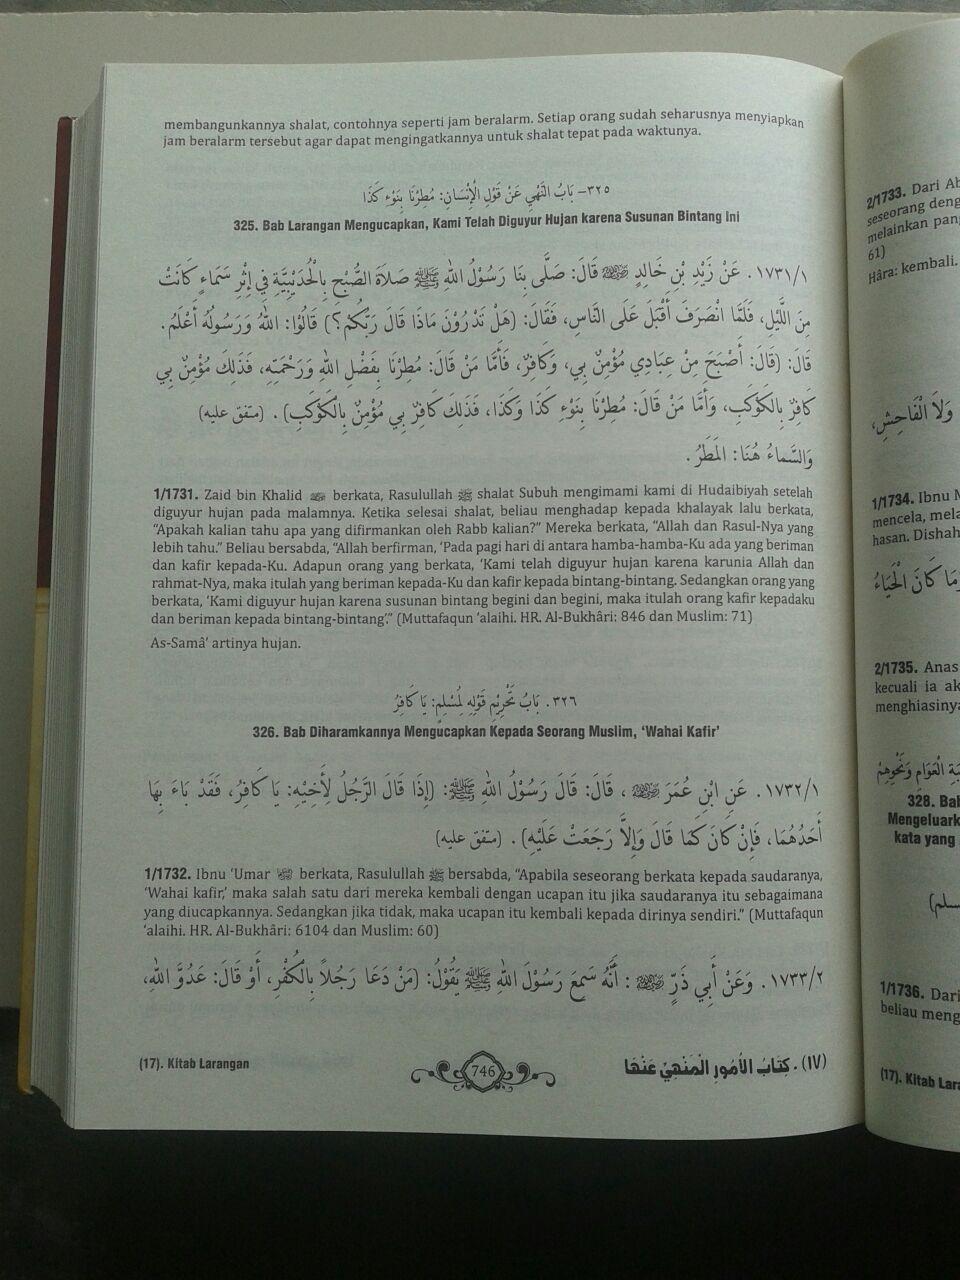 membangunkannya shalat, contohnya seperti jam beralarm. Setiap orang sudah seharusnya menyiapkan
jam beralarm tersebut agar dapat mengingatkannya untuk shalat tepat pada waktunya.
٣٢٥- بَابُ النَّهْيِ عَنْ قَوْلِ الْإِنْسَانِ: مُطِرْنَا بِنَوْءِ كَذَا
325. Bab Larangan Mengucapkan, Kami Telah Diguyur Hujan karena Susunan Bintang Ini
١٧٣١/١. عَنْ زَيْدِ بْنِ خَالِدٍ ﷺ قَالَ: صَلَّى بِنَا رَسُوْلُ اللهِ ﷺ صَلَاةَ الصُّبْحِ بِالْحُدَيْبِيَّةِ فِي إِثْرِ سَمَاءٍ كَانَتْ
مِنَ اللَّيْلِ، فَلَمَّا انْصَرَفَ أَقْبَلَ عَلَى النَّاسِ، فَقَالَ: (هَلْ تَدْرُوْنَ مَاذَا قَالَ رَبُّكُمْ؟) قَالُوْا: اللهُ وَرَسُوْلُهُ أَعْلَمُ.
قَالَ: (قَالَ: أَصْبَحَ مِنْ عِبَادِي مُؤْمِنٌ بِي، وَكَافِرٌ، فَأَمَّا مَنْ قَالَ: مُطِرْنَا بِفَضْلِ اللهِ وَرَحْمَتِهِ، فَذَلِكَ مُؤْمِنٌ بِي
كَافِرٌ بِالْكَوْكَبِ، وَأَمَّا مَنْ قَالَ: مُطِرْنَا بِنَوْءِ كَذَا وَكَذَا، فَذَلِكَ كَافِرٌ بِي مُؤْمِنٌ بِالْكَوْكَبِ). (متفق عليه)
وَالسَّمَاءُ هُنَا: الْمَطَرُ.
1/1731. Zaid bin Khalid berkata, Rasulullah ﷺ shalat Subuh mengimami kami di Hudaibiyah setelah
diguyur hujan pada malamnya. Ketika selesai shalat, beliau menghadap kepada khalayak lalu berkata,
“Apakah kalian tahu apa yang difirmankan oleh Rabb kalian?” Mereka berkata, “Allah dan Rasul-Nya yang
lebih tahu.” Beliau bersabda, “Allah berfirman, ‘Pada pagi hari di antara hamba-hamba-Ku ada yang beriman
dan kafir kepada-Ku. Adapun orang yang berkata, ‘Kami telah diguyur hujan karena karunia Allah dan
rahmat-Nya, maka itulah yang beriman kepada-Ku dan kafir kepada bintang-bintang. Sedangkan orang yang
berkata, ‘Kami diguyur hujan karena susunan bintang begini dan begini, maka itulah orang kafir kepadaku
dan beriman kepada bintang-bintang’.” (Muttafaqun ‘alaihi. HR. Al-Bukhâri: 846 dan Muslim: 71)
As-Samâ’ artinya hujan.
٣٢٦. بَابُ تَحْرِيْمِ قَوْلِهِ لِمُسْلِمٍ: يَا كَافِرُ
326. Bab Diharamkannya Mengucapkan Kepada Seorang Muslim, ‘Wahai Kafir’
١٧٣٢/١. عَنِ ابْنِ عُمَرَ، قَالَ: قَالَ رَسُوْلُ اللهِ ﷺ: (إِذَا قَالَ الرَّجُلُ لِأَخِيْهِ: يَا كَافِرُ، فَقَدْ بَاءَ بِهَا
أَحَدُهُمَا، فَإِنْ كَانَ كَمَا قَالَ وَإِلَّا رَجَعَتْ عَلَيْهِ). (متفق عليه)
1/1732. Ibnu ‘Umar berkata, Rasulullah ﷺ bersabda, “Apabila seseorang berkata kepada saudaranya,
‘Wahai kafir,’ maka salah satu dari mereka kembali dengan ucapan itu jika saudaranya itu sebagaimana
yang diucapkannya. Sedangkan jika tidak, maka ucapan itu kembali kepada dirinya sendiri.” (Muttafaqun
‘alaihi. HR. Al-Bukhâri: 6104 dan Muslim: 60)
١٧٣٣/٢. وَعَنْ أَبِي ذَرٍّ: أَنَّهُ سَمِعَ رَسُوْلَ اللهِ ﷺ يَقُوْلُ: (مَنْ دَعَا رَجُلًا بِالْكُفْرِ، أَوْ قَالَ: عَدُوَّ اللهِ،
(17). Kitab Larangan 746 (١٧). كِتَابُ الأُمُورِ الْمَنْهِيِّ عَنْهَا
2/1733. Dari Ab
seseorang deng
melainkan pan
61)
Hâra: kembali.
وَلَا الْفَاحِشِ،
1/1734. Ibnu M
mencela, mela
hasan. Dishah
مَا كَانَ الْحَيَاءُ
2/1735. Anas
kecuali ia ak
menghiasinya
الْعَوَامِ وَنَحْوِهِمْ
328. Bab
Mengeluark
kata yang
1/1736. Dari
beliau meng
(17). Kitab Lara